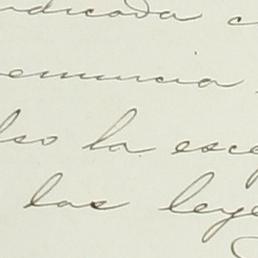 ndicada c
enuncia
lso la esce
las leye